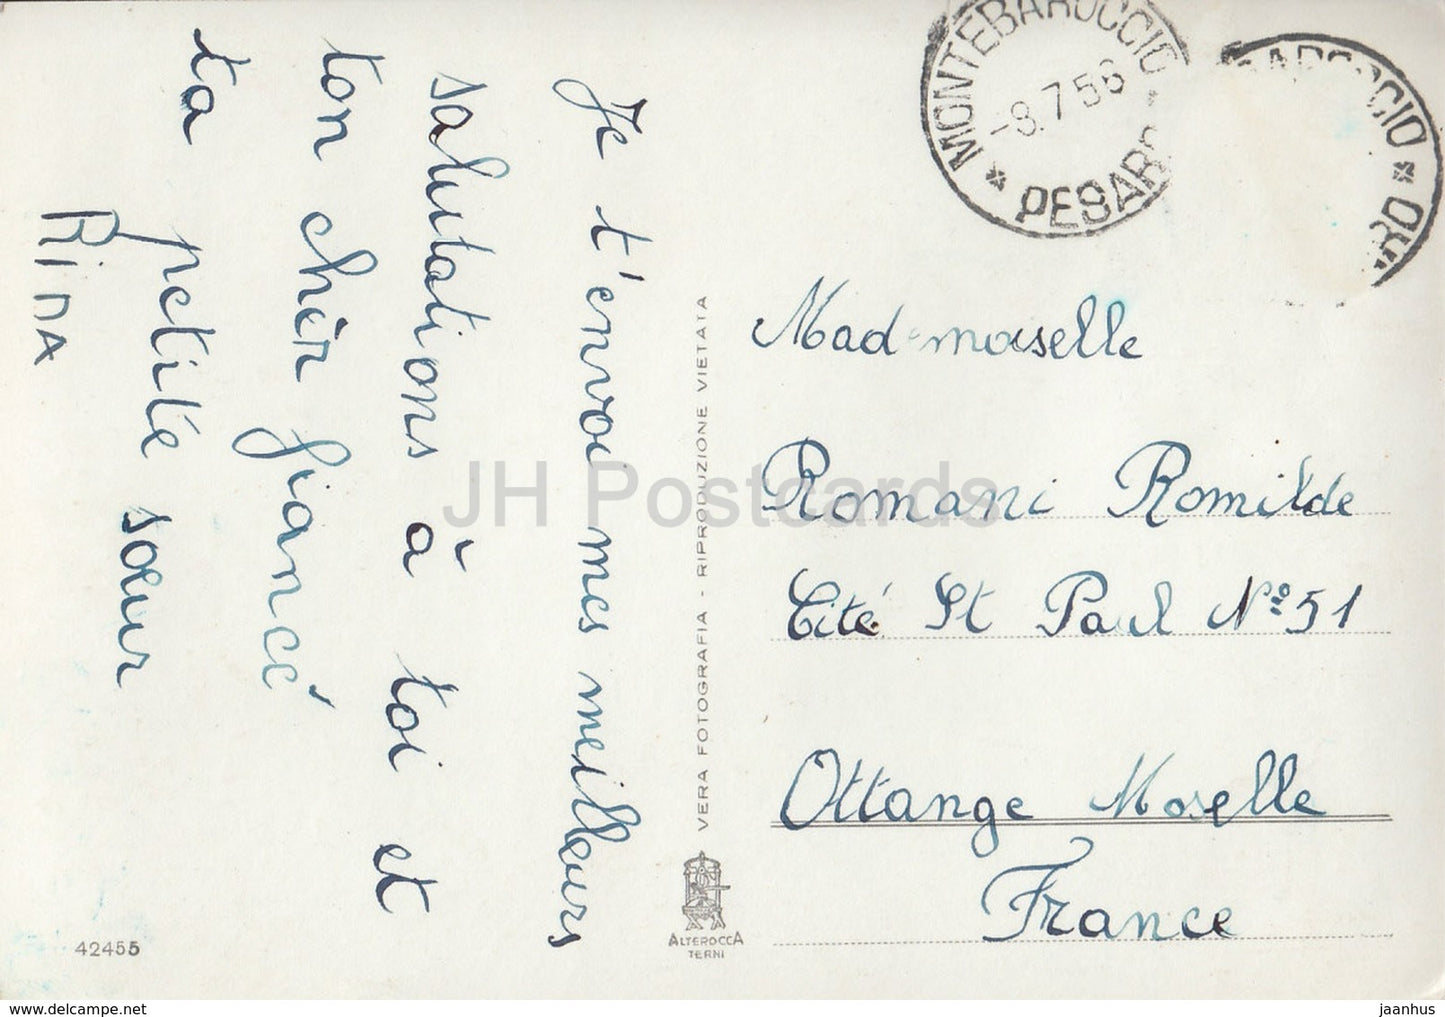 Je t'envoi mes meilleurs
salutations à toi et
ton chèr fiancé
ta petite sœur
RiNA
42455
VERA FOTOGRAFIA - RIPRODUZIONE VIETATA
ALTEROCCA
TERNI
MONTEBAROCCIO
-8.7.56
* PESARO
AROCCIO *
RO
Mademoiselle
Romani Romilde
Cité St Paul N° 51
Ottange Moselle
France
JH Postcards
https://www.delcampe.net
jaanhus